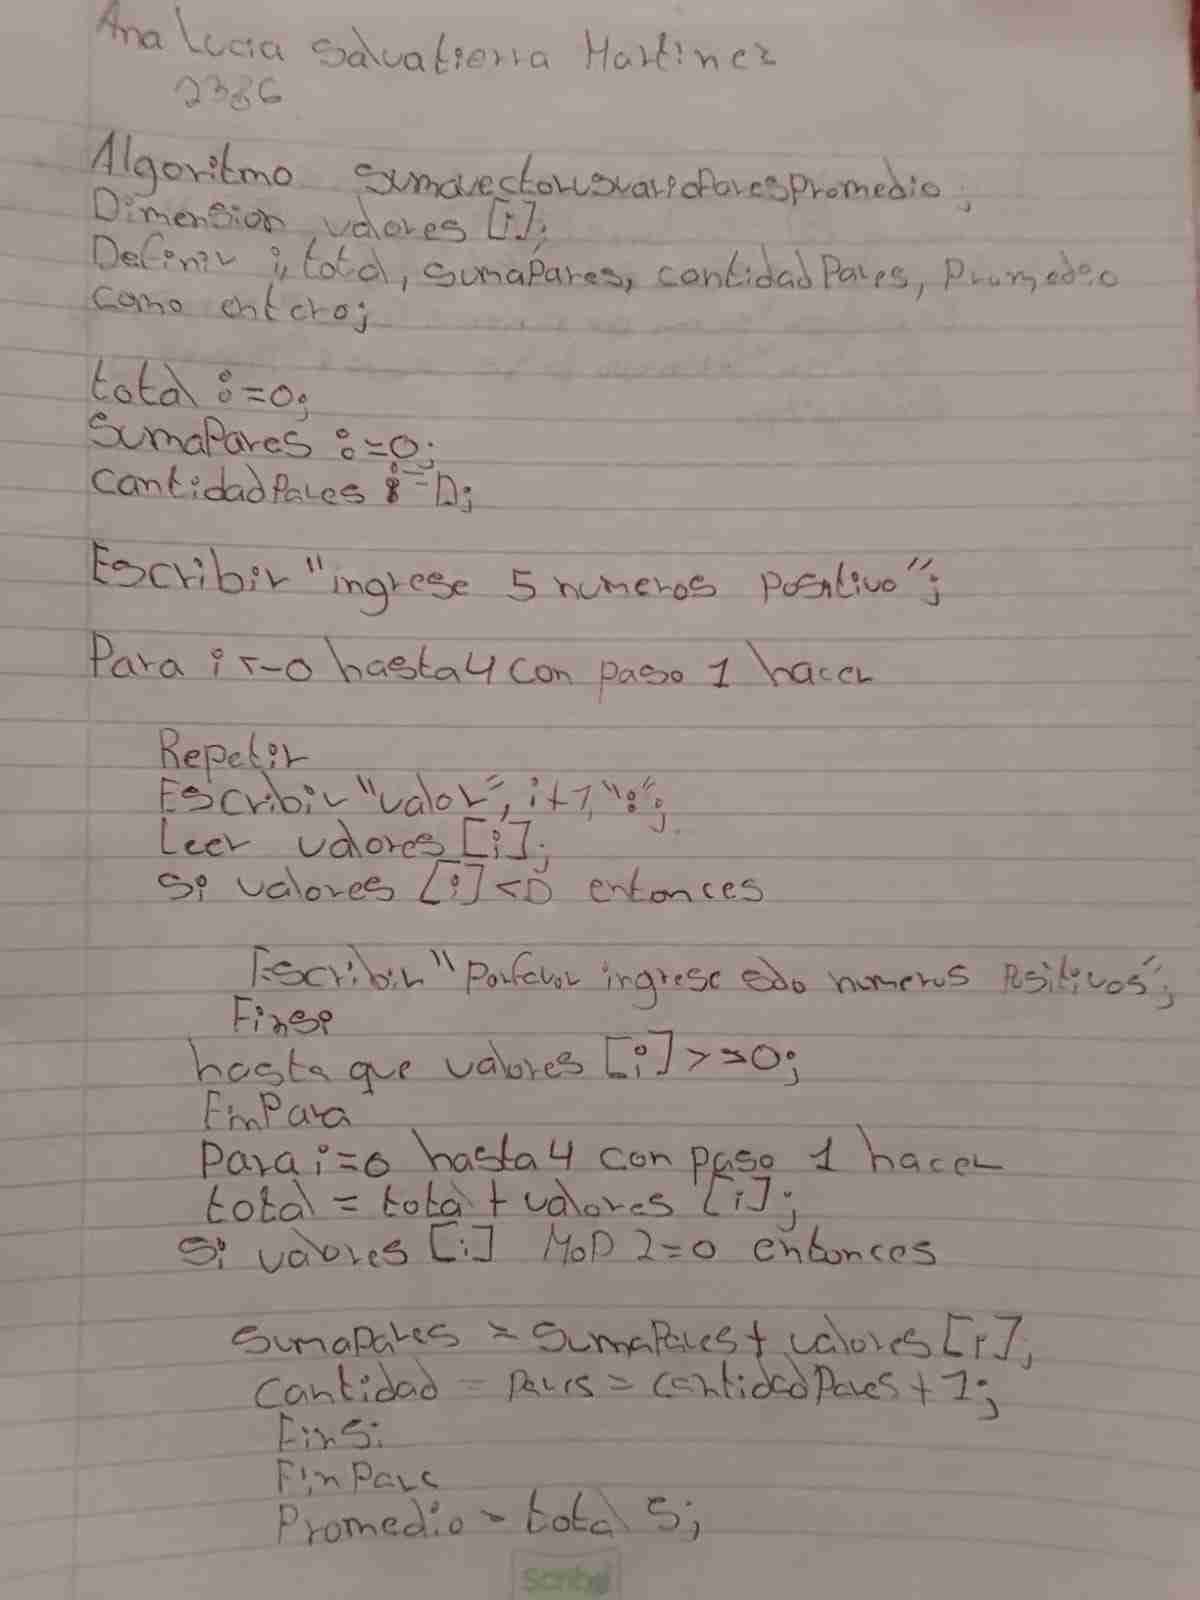 Ana Lucia Salvatierra Martinez
2386
Algoritmo sumavectorusuarioParesPromedio;
Dimension valores [i];
Definir i, total, sumaPares, cantidadPares, Promedio
como entero;
total := 0;
SumaPares := 0;
cantidadPares := 0;
Escribir "ingrese 5 numeros positivo";
Para i <- 0 hasta 4 con paso 1 hacer
Repetir
Escribir "valor", i+1, ":";
Leer valores [i];
Si valores [i] <0 entonces
Escribir "Porfavor ingrese solo numeros Positivos";
Finsi
hasta que valores [i] >=0;
FinPara
Para i=0 hasta 4 con paso 1 hacer
total = total + valores [i];
Si valores [i] MOD 2=0 entonces
sumaPares = sumaPares + valores [i];
Cantidad - pares = cantidadPares + 1;
FinSi
FinPara
Promedio - total 5;
Scribe